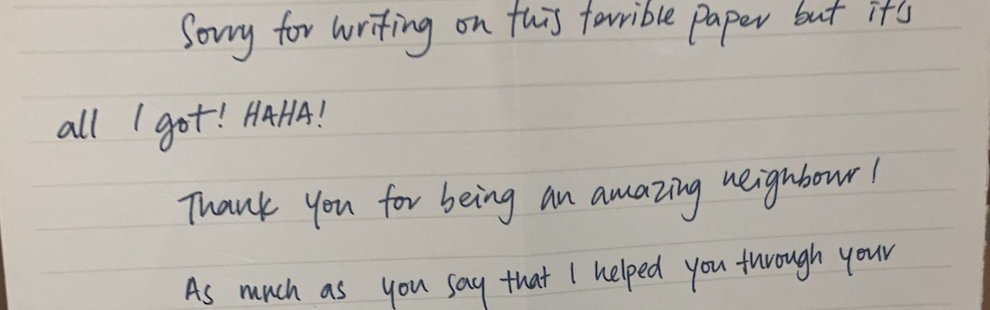 Sorry for writing on this terrible paper but it's
all I got! HAHA!
Thank you for being an amazing neighbour!
As much as you say that I helped you through your